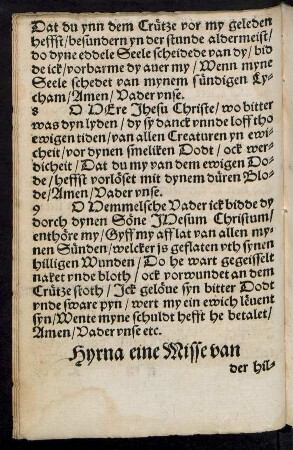 Dat du ynn dem Crütze vor my geleden
heffst/besündern yn der stunde aldermeist/
do dyne eddele Seele scheidede van dy/bid
de ick/vorbarme dy auer my/Wenn myne
Seele schedet van mynem sündigen Ly-
cham/Amen/Vader vnse.
8 O HEre Jhesu Christe/wo bitter
was dyn lyden/dy sy danck vnnde loff tho
ewigen tiden/van allen Creaturen yn ewi-
cheit/vor dynen smeliken Dodt/ock wer-
dicheit/Dat du my van dem ewigen Do-
de/heffst vorlöset mit dynem düren Blo-
de/Amen/Vader vnse.
9 O Hemmelsche Vader ick bidde dy
dorch dynen Söne JHesum Christum/
enthöre my/Gyff my afflat van allen my-
nen Sünden/welcker js geflaten vth synen
hilligen Wunden/Do he wart gegeisselt
naket vnde bloth/ock vorwundet an dem
Crütze stoth/Jck gelöue syn bitter Dodt
vnde sware pyn/wert my ein ewich leuent
syn/Wente myne schuldt hefft he betalet/
Amen/Vader vnse etc.
Hyrna eine Misse van
der hil-